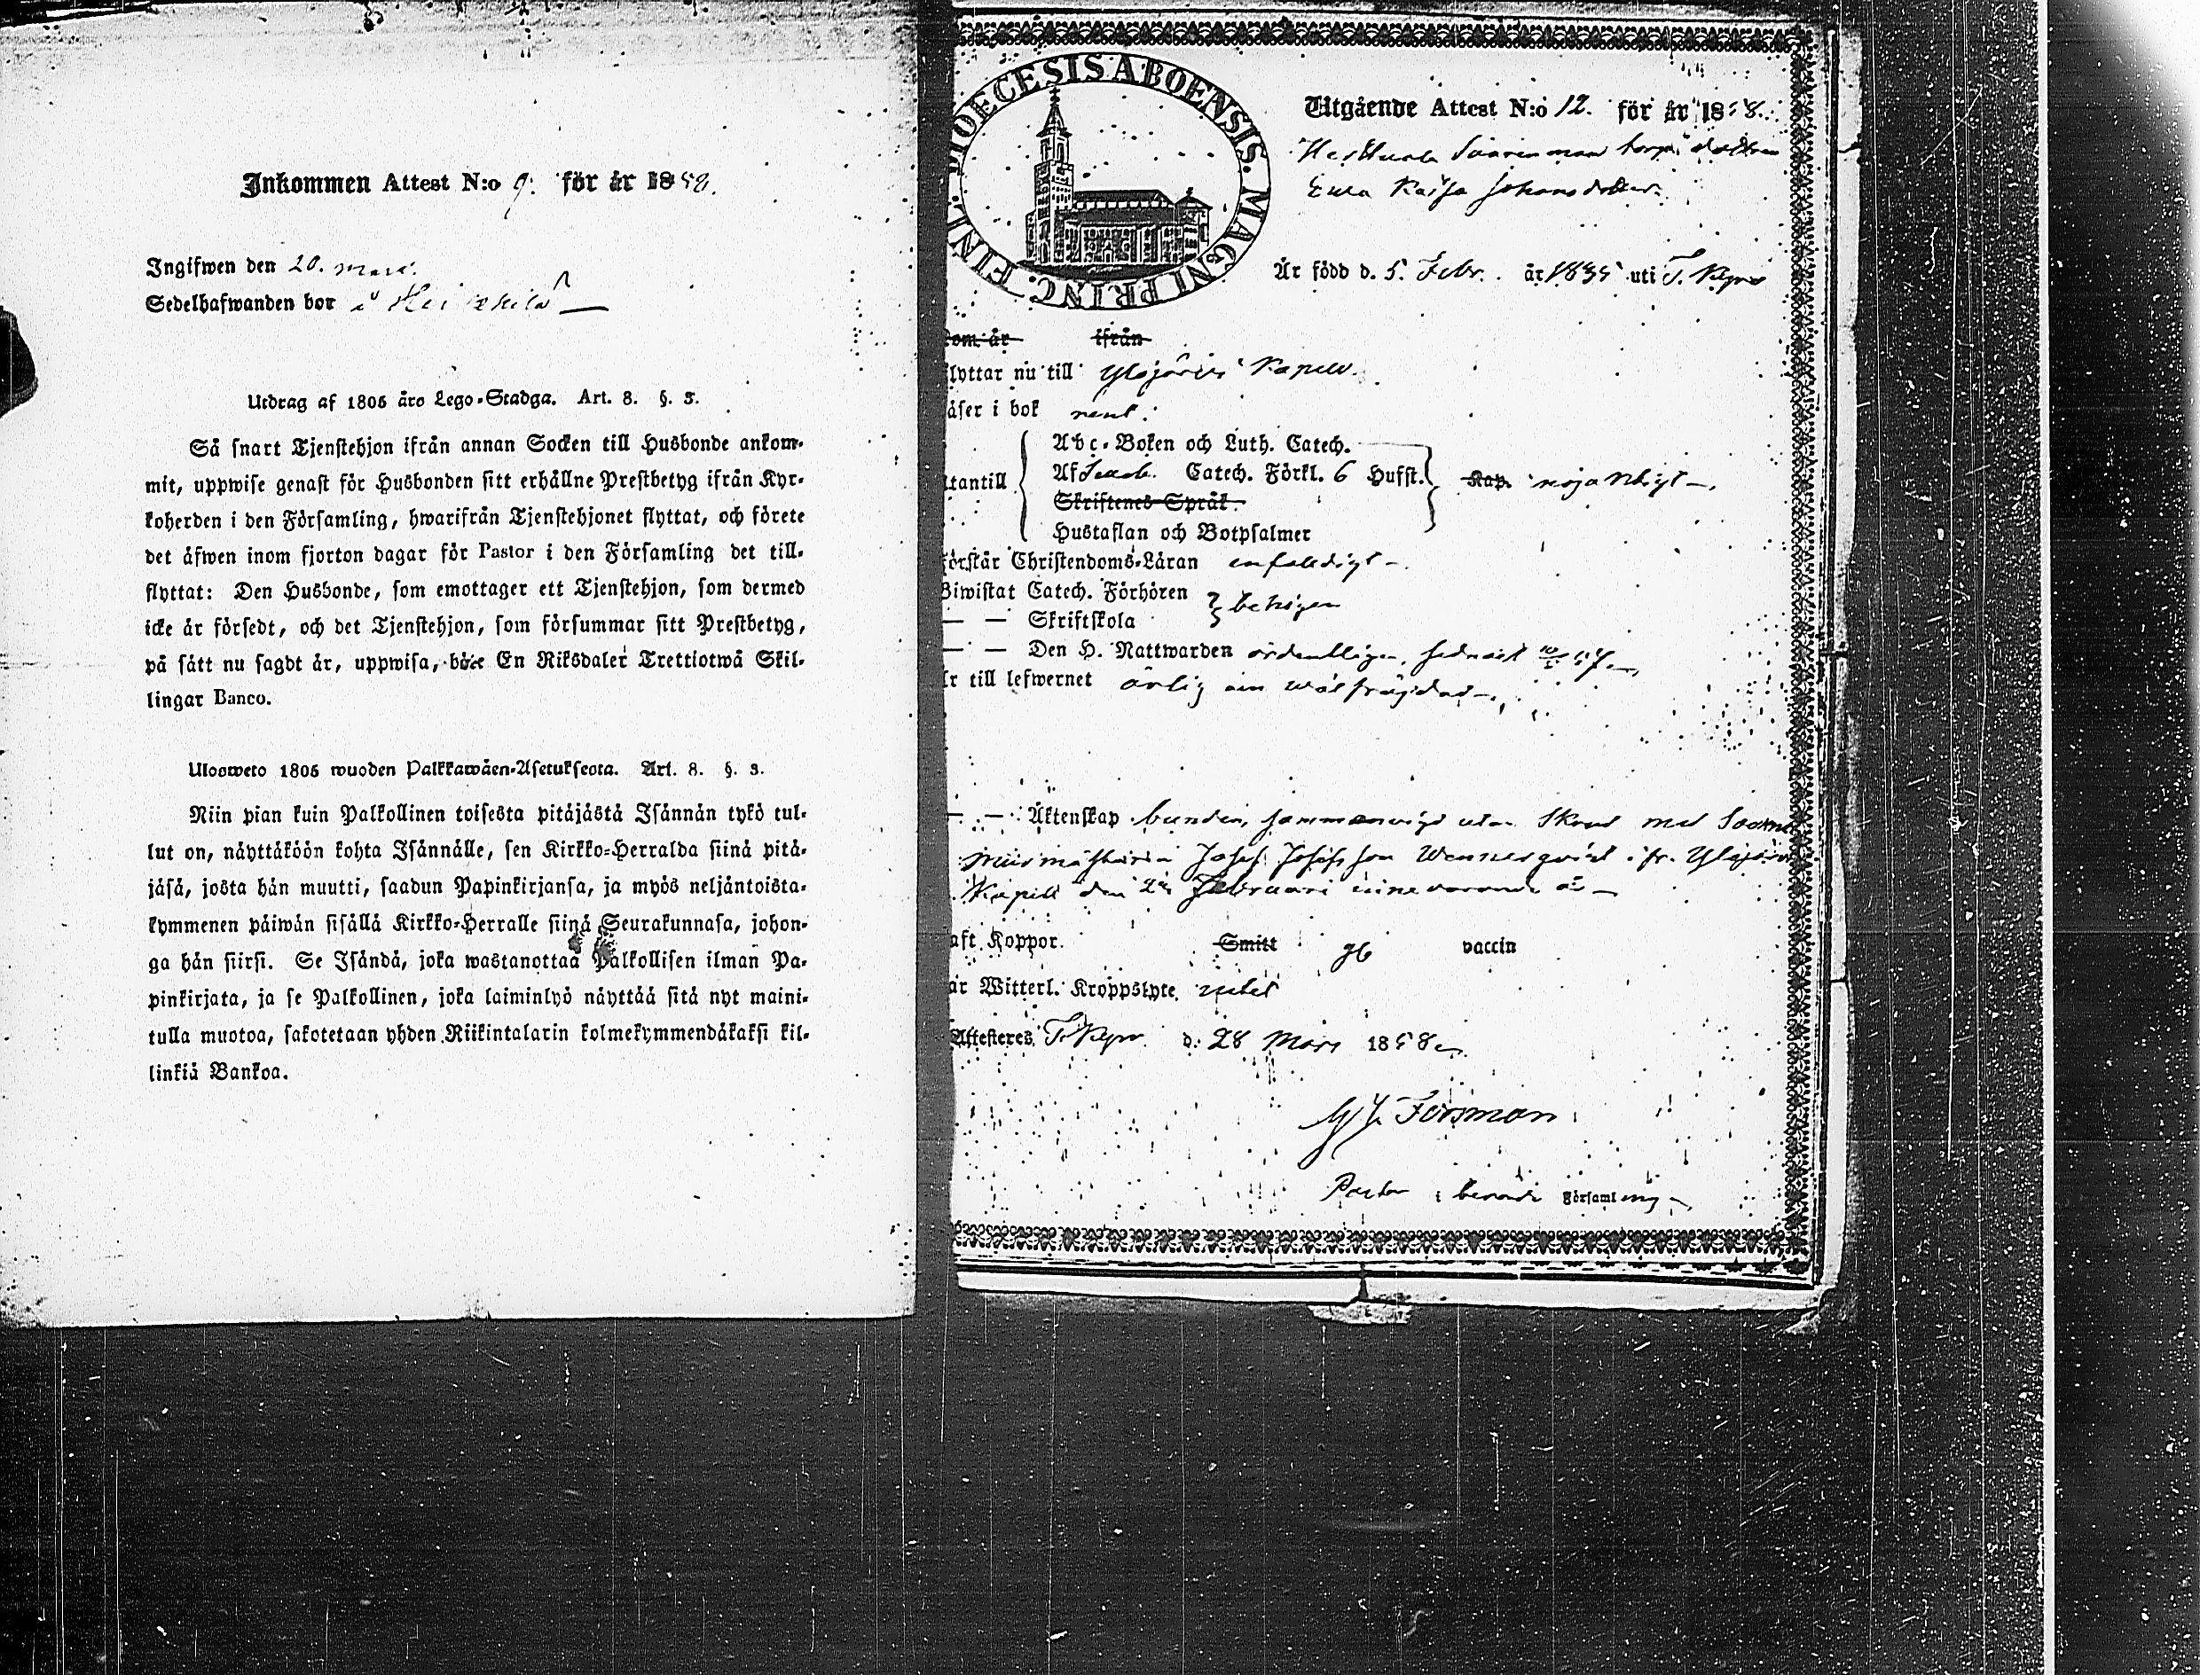 Inkommen Attest N:o 9. för år 1858.
Ingifwen den 20. mars.
Sedelhafwanden bor i
Utdrag af 1805 års Lego-Stadga. Art. 8. §. 3.
Så snart Tjenstehjon ifrån annan Socken till Husbonde ankom-
mit, uppwise genast för Husbonden sitt erhållne Prestbetyg ifrån Kyr-
koherden i den Församling, hwarifrån Tjenstehjonet flyttat, och förete
det äfwen inom fjorton dagar för Pastor i den Församling det till-
flyttat: Den Husbonde, som emottager ett Tjenstehjon, som dermed
icke är försedt, och det Tjenstehjon, som försummar sitt Prestbetyg,
på sätt nu sagdt är, uppwisa, böte En Riksdaler Trettiotwå Skil-
lingar Banco.
Ulosweto 1805 wuoden Palkkawäen-Asetuksesta. Art. 8. §. 3.
Niin pian kuin Palkollinen toisesta pitäjästä Isännän tykö tul-
lut on, näyttäköön kohta Isännälle, sen Kirkko-Herralda siinä pitä-
jäsä, josta hän muutti, saadun Papinkirjansa, ja myös neljäntoista-
kymmenen päiwän sisällä Kirkko-Herralle siinä Seurakunnasa, johon-
ga hän siirsi. Se Isändä, joka wastanottaa Palkollisen ilman Pa-
pinkirjata, ja se Palkollinen, joka laiminlyö näyttää sitä nyt maini-
tulla muotoa, sakotetaan yhden Riikintalarin kolmekymmendäkaksi kil-
linkiä Bankoa.
DIOECESIS ABOENSIS. MAGNI PRINC. FINL.
Utgående Attest N:o 12. för år 1858.
Eva Kajsa Johansdotter.
Är född d. 5. Febr. år 1835 uti T. Kyro
som är ifrån
flyttar nu till Ylöjärvi Kapell.
läser i bok rent.
Abc-Boken och Luth. Catech.
Af Catech. Förkl. 6 Hufst. Kap. nöjaktligt
utantill
Skriftenes Språk.
Hustaflan och Botpsalmer
förstår Christendoms-Läran enfaldigt
Biwistat Catech. Förhören
— — Skriftskola behörigen
— — Den H. Nattwarden ordentligen, sednast
Är till lefwernet ärlig
— — Äktenskap bunden, sammanvigd med
Josef Josefsson Wennerqvist ifr. Ylöjärvi
Kapell den Februari innevarande år
haft Koppor. Smitt vaccin
är Witterl. Kroppslyte intet
Attesteres T. Kyro d. 28 Mars 1858
Forsman
Pastor i berörde Församling